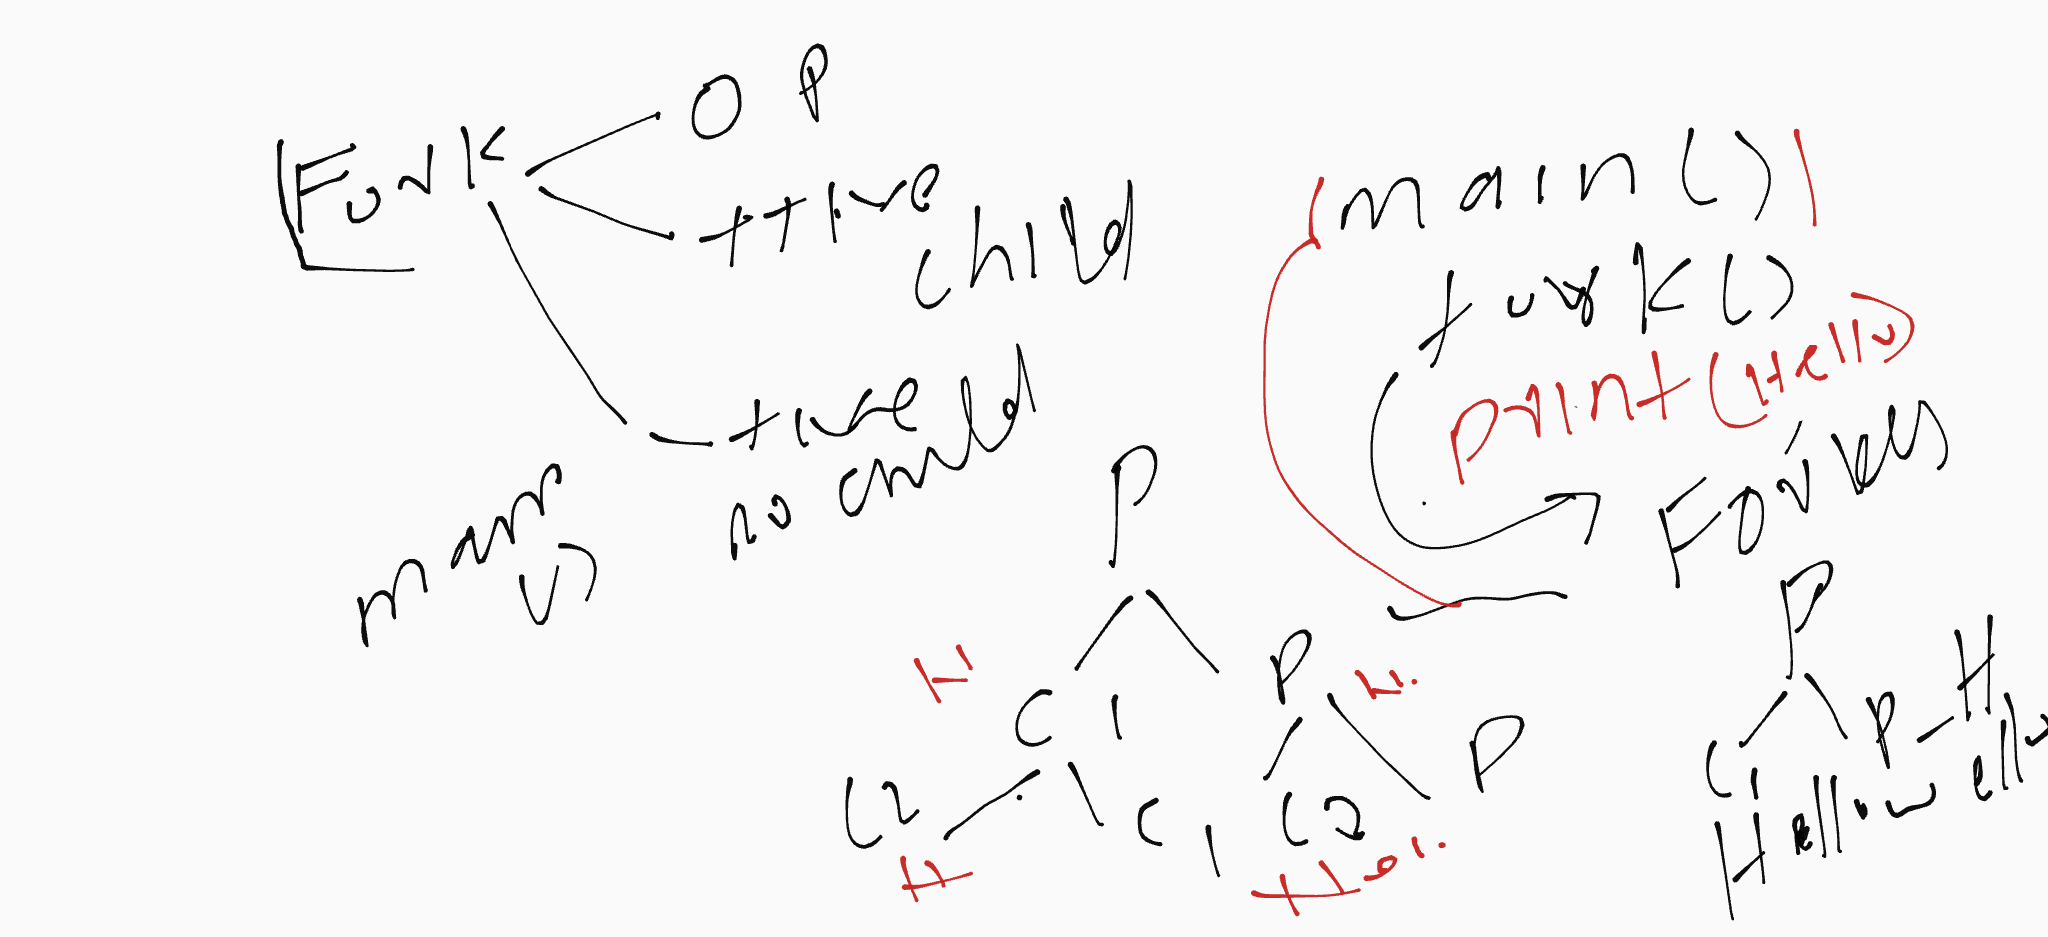 Fork
O P
++ive
child
-tive
no child
main
()
main()
fork()
print(Hello)
P
C1
P
C2
C1
C2
P
H
P
C1
P - Hello
Hello